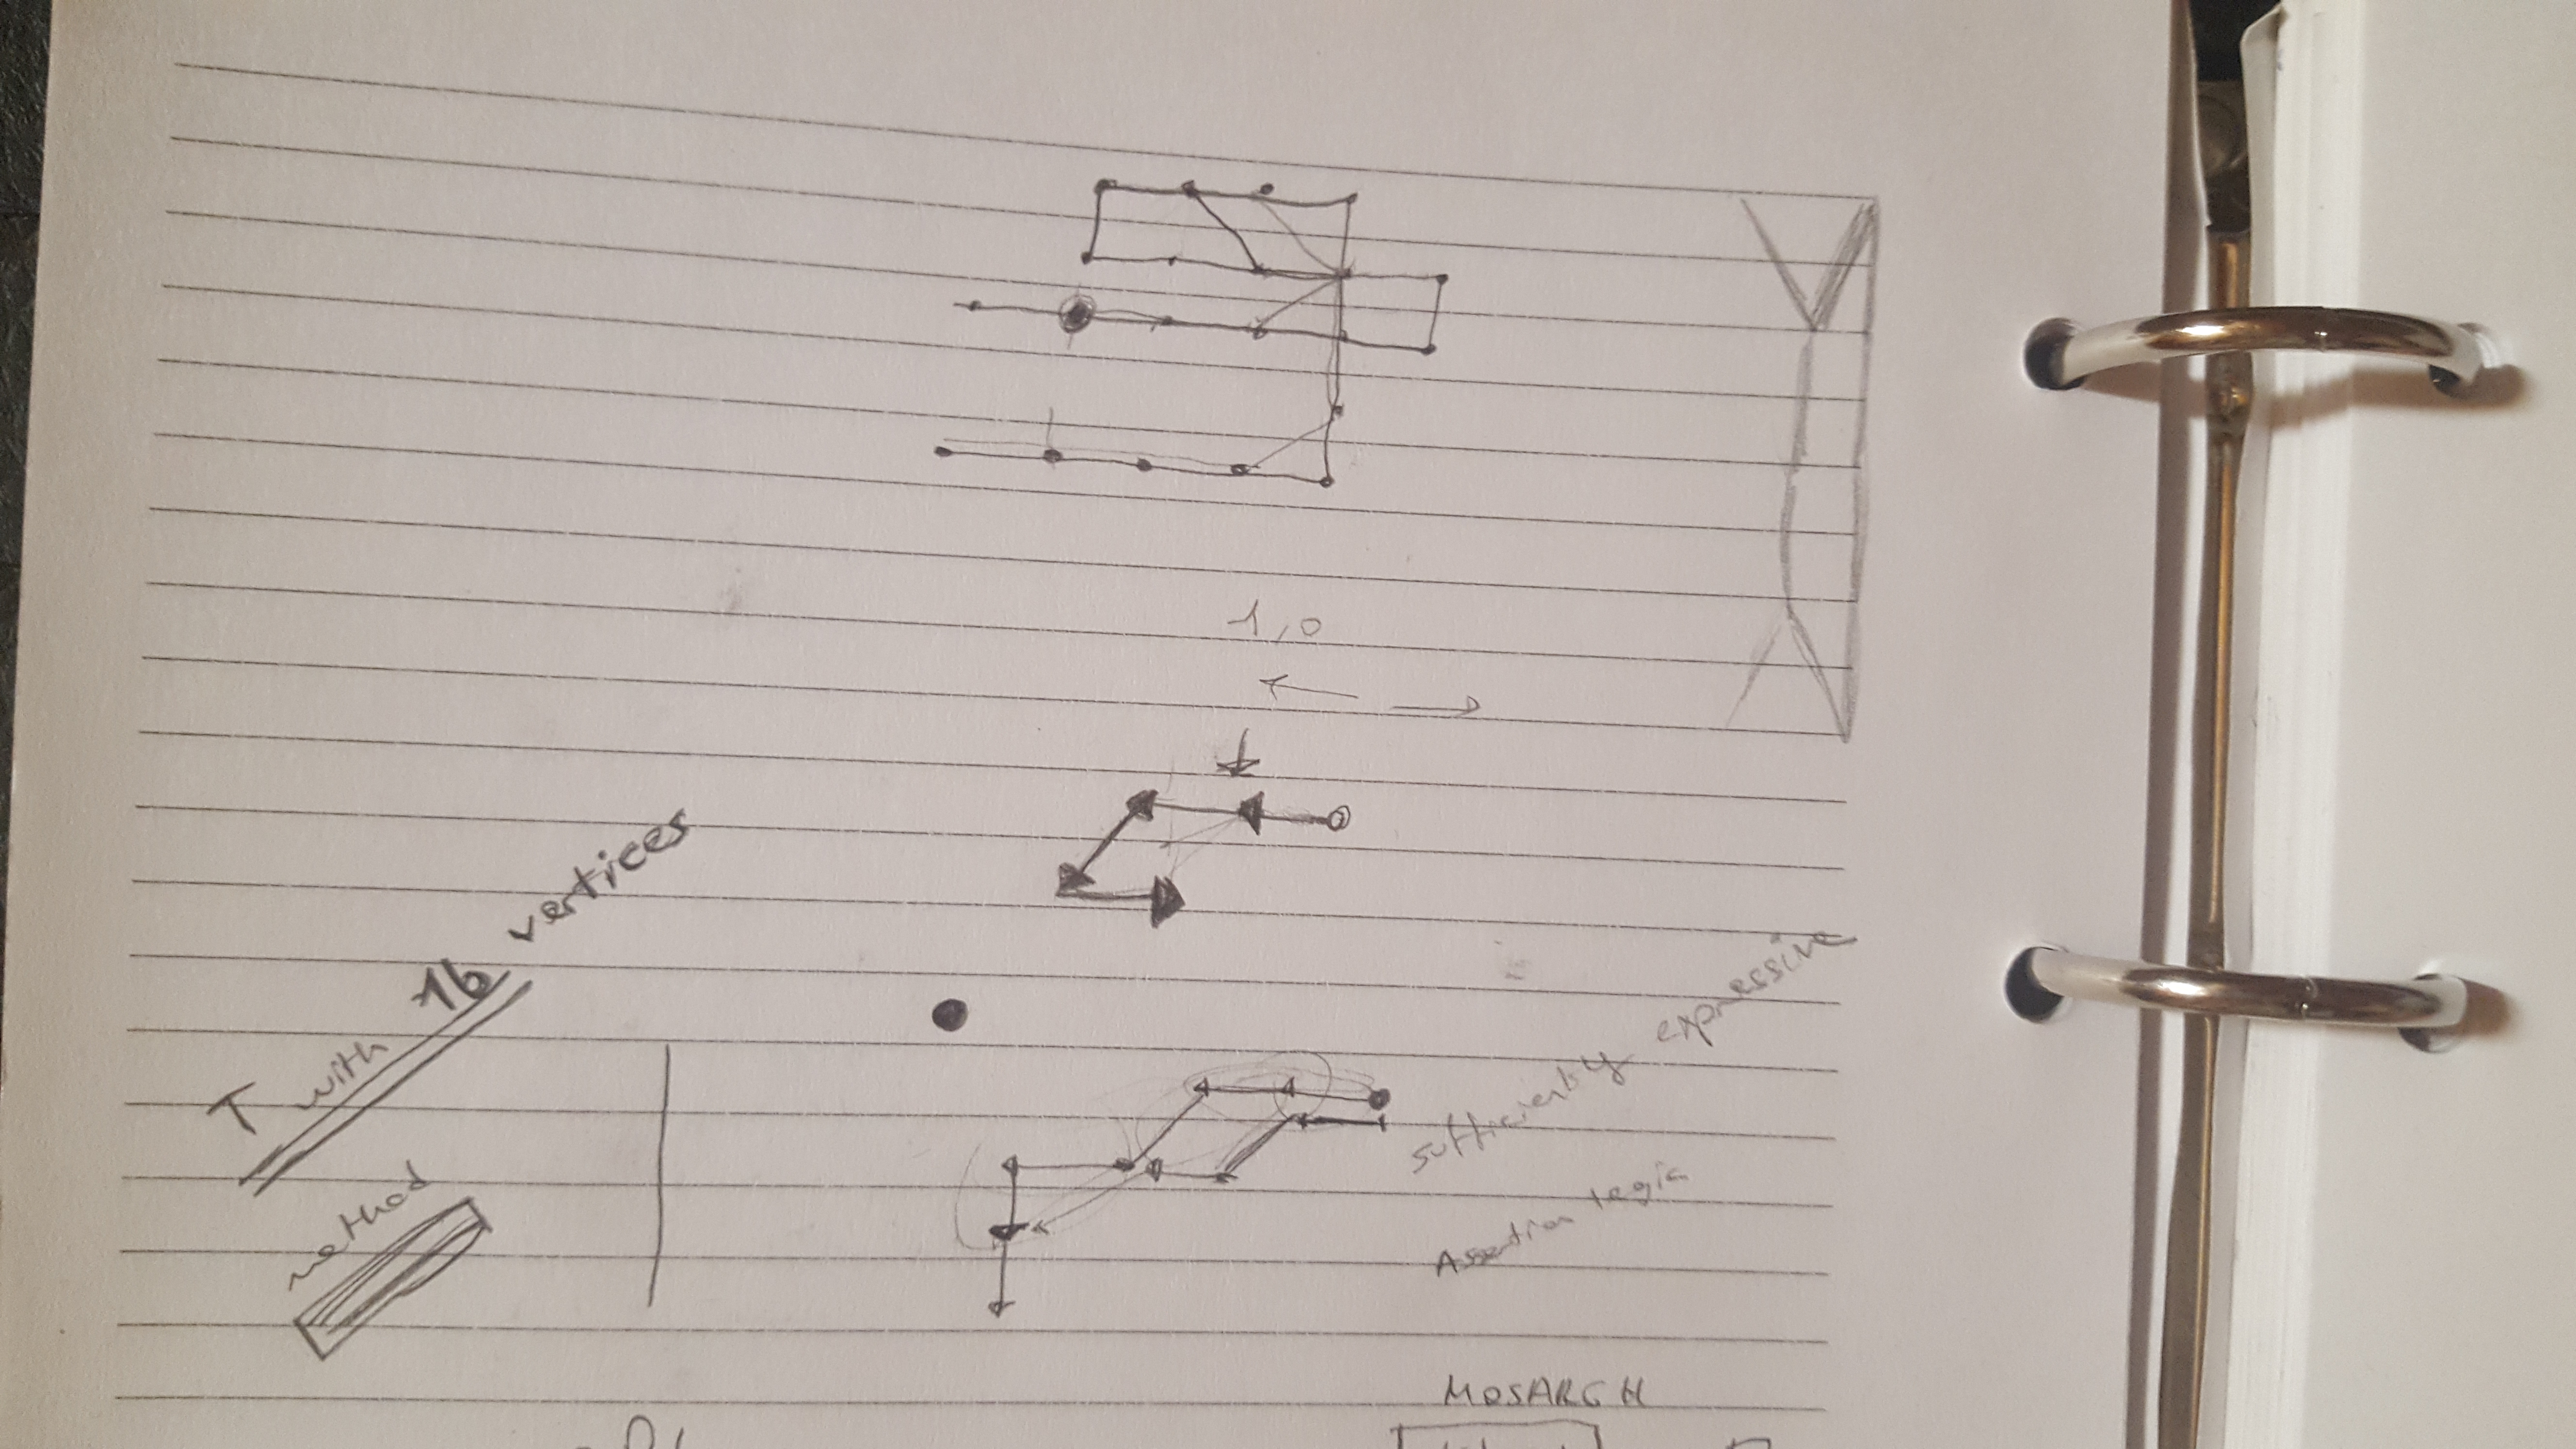 T with 16 vertices
method
1,0
sufficiently expressive
Assertion logic
MOSARGH